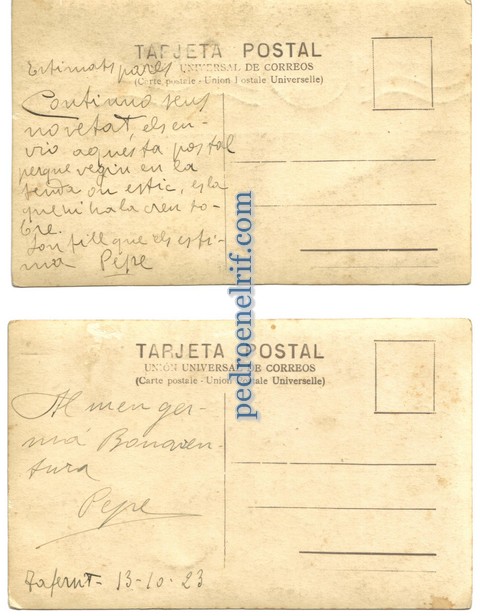 TARJETA POSTAL
UNIVERSAL DE CORREOS
(Carte postale - Union Postale Universelle)
Estimats pares
Continuo sens
novetat, els en-
vio aquesta postal
perque vegin en la
tenda on estic, es la
que ni ha la creu so-
bre.
Son fill que els esti-
ma Pepe
TARJETA POSTAL
UNIÓN UNIVERSAL DE CORREOS
(Carte postale - Union Postale Universelle)
Al meu ger-
má Bonaven-
tura
Pepe
Tafersit - 13-10-23
pedroenelrif.com